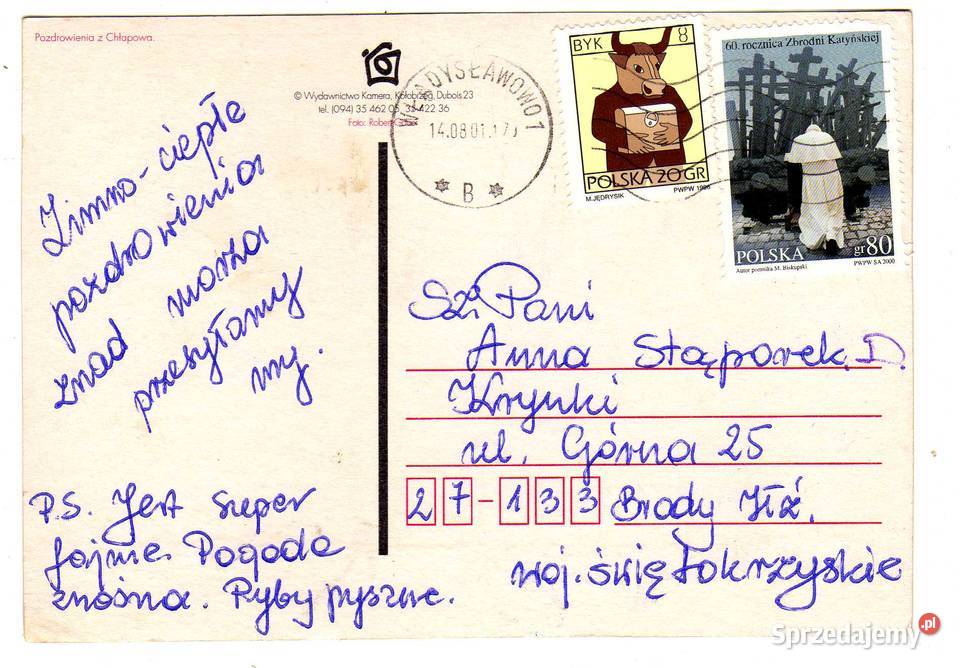 Pozdrowienia z Chłapowa.
© Wydawnictwo Kamera, Kołobrzeg, Dubois 23
tel. (094) 35 462 05, 35 422 36
Foto: Robert
WŁADYSŁAWOWO 1
14.08.01
* B *
BYK 8
POLSKA 20 GR
M. JĘDRYSIK PWPW 1996
60. rocznica Zbrodni Katyńskiej
POLSKA gr 80
Autor pomnika M. Biskupski PWPW SA 2000
Zimno-ciepłe
pozdrowienia
znad morza
przesyłamy
my.
P.S. Jest super
fajnie. Pogoda
znośna. Ryby pyszne.
Sz. Pani
Anna Stąporek. D.
Krynki
ul. Górna 25
27-133 Brody Iłż.
woj. świętokrzyskie
Sprzedajemy.pl